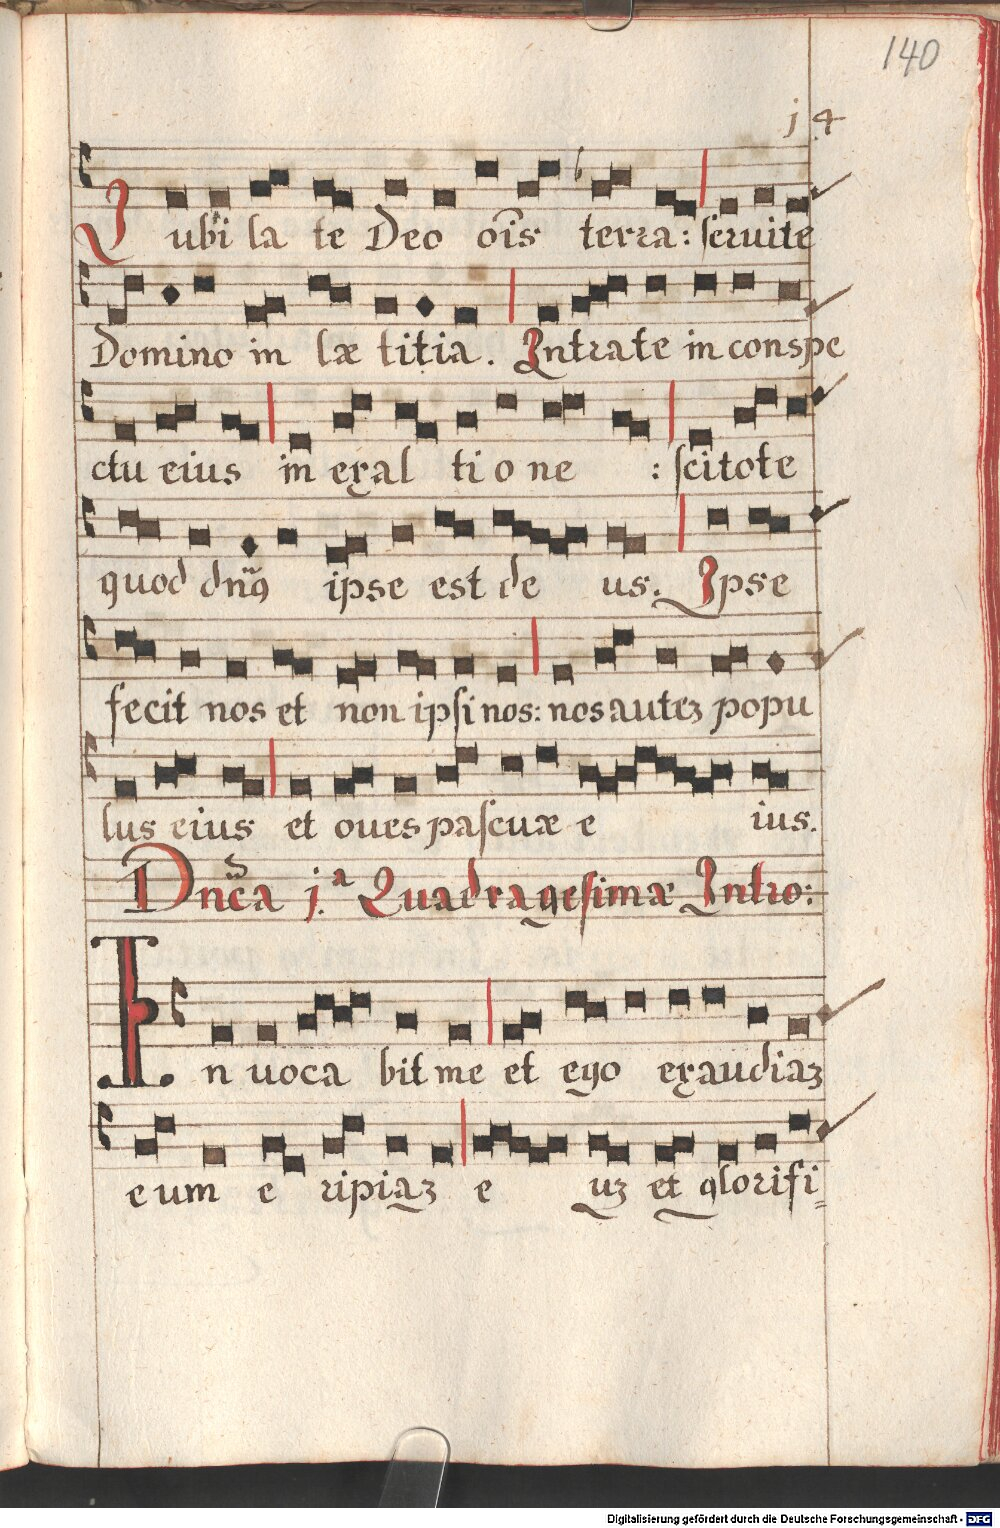 140
j 4
Jubi la te Deo oı̃s terra: seruite
Domino in læ titia. Intrate in conspe
ctu eius in exal ti o ne : scitote
quod dnũq ipse est de us. Ipse
fecit nos et non ipsi nos: nos autez popu
lus eius et oues pascuæ e ius.
Dnĩca j.ª Quadragesimæ Intro:
In uoca bit me et ego exaudiaz
eum e ripiaz e uz et glorifi=
Digitalisierung gefördert durch die Deutsche Forschungsgemeinschaft - DFG